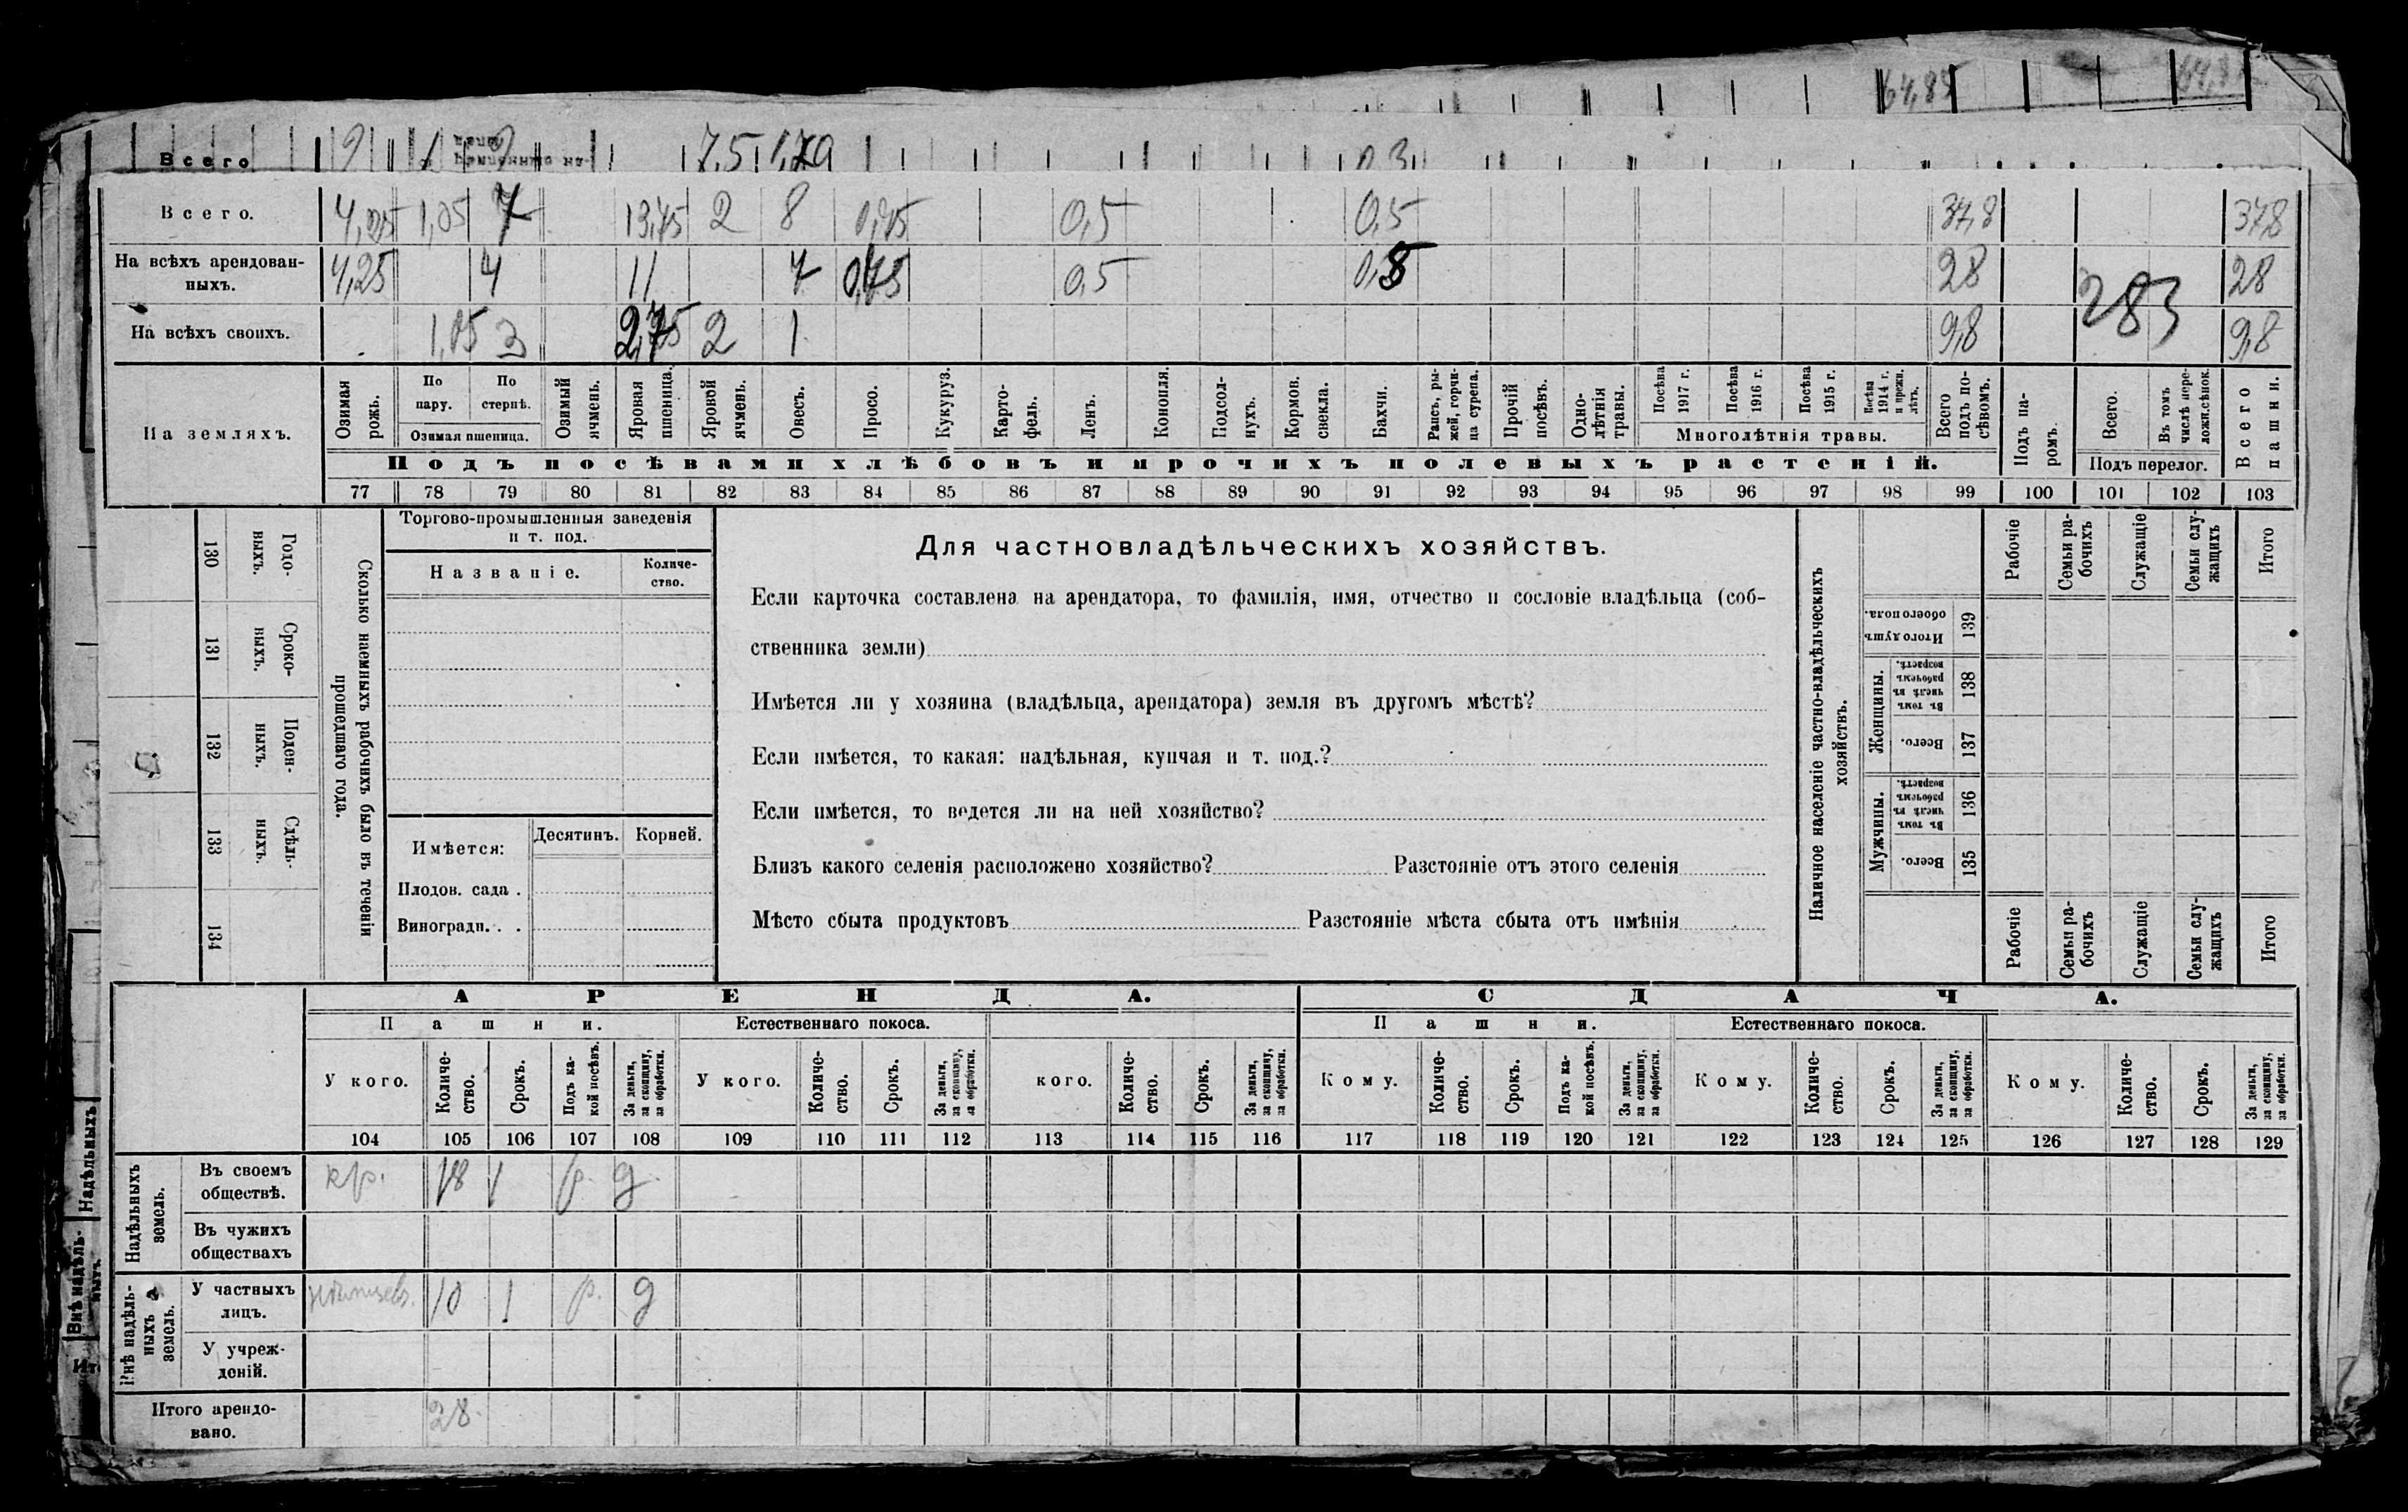 64,85
Всего 9 1 9 7,5 1,79 0,3
Всего. 4,25 1,05 7 13,75 2 8 0,75 0,5 0,5 37,8 37,8
На всѣхъ арендован-
ныхъ. 4,25 4 11 7 0,75 0,5 0,5 28 28
283
На всѣхъ своихъ. 1,05 3 2,75 2 1 9,8 9,8
На земляхъ.
Озимая рожь.
По пару.
По стернѣ.
Озимая пшеница.
Озимый ячмень.
Яровая пшеница.
Яровой ячмень.
Овесъ.
Просо.
Кукуруз.
Карто-
фель.
Ленъ.
Конопля.
Подсол-
нухъ.
Кормов. свекла.
Бахчи.
Рапсъ, ры-
жей, горчи-
ца сурепа.
Прочій посѣвъ.
Одно-
лѣтнія травы.
Посѣва 1917 г.
Посѣва 1916 г.
Посѣва 1915 г.
Посѣва 1914 г. и прежн. лѣтъ.
Многолѣтнія травы.
Всего подъ по-
сѣвомъ.
Подъ па-
ромъ.
Всего.
Въ томъ числѣ пере-
ложн.сѣнок.
Подъ перелог.
Всего пашни.
Подъ посѣвами хлѣбовъ и прочихъ полевыхъ растеній.
77 78 79 80 81 82 83 84 85 86 87 88 89 90 91 92 93 94 95 96 97 98 99 100 101 102 103
Годо-
выхъ. 130
Сроко-
выхъ. 131
Поден-
ныхъ. 132
Сдѣль-
ныхъ. 133
134
Сколько наемныхъ рабочихъ было въ теченіи
прошедшаго года.
Торгово-промышленныя заведенія
и т. под.
Названіе. Количе-
ство.
Имѣется: Десятинъ. Корней.
Плодов. сада .
Виноградн. . .
Для частновладѣльческихъ хозяйствъ.
Если карточка составлена на арендатора, то фамилія, имя, отчество и сословіе владѣльца (соб-
ственника земли)
Имѣется ли у хозяина (владѣльца, арендатора) земля въ другомъ мѣстѣ?
Если имѣется, то какая: надѣльная, купчая и т. под.?
Если имѣется, то ведется ли на ней хозяйство?
Близъ какого селенія расположено хозяйство? Разстояніе отъ этого селенія
Мѣсто сбыта продуктовъ Разстояніе мѣста сбыта отъ имѣнія
Наличное населеніе частно-владѣльческихъ
хозяйствъ.
Рабочіе
Семьи ра-
бочихъ
Служащіе
Семьи слу-
жащихъ
Итого
Итого душъ обоего пола. 139
Женщины.
Въ томъ числѣ въ рабочемъ возрастѣ. 138
Всего. 137
Мужчины.
Въ томъ числѣ въ рабочемъ возрастѣ. 136
Всего. 135
Рабочіе
Семьи ра-
бочихъ
Служащіе
Семьи слу-
жащихъ
Итого
АРЕНДА. СДАЧА.
Пашни. Естественнаго покоса. Пашни. Естественнаго покоса.
У кого. Количе-
ство. Срокъ. Подъ ка-
кой посѣвъ. За деньги, за скопщину, за обработки.
У кого. Количе-
ство. Срокъ. За деньги, за скопщину, за обработки.
кого. Количе-
ство. Срокъ. За деньги, за скопщину, за обработки.
Кому. Количе-
ство. Срокъ. Подъ ка-
кой посѣвъ. За деньги, за скопщину, за обработки.
Кому. Количе-
ство. Срокъ. За деньги, за скопщину, за обработки.
Кому. Количе-
ство. Срокъ. За деньги, за скопщину, за обработки.
104 105 106 107 108 109 110 111 112 113 114 115 116 117 118 119 120 121 122 123 124 125 126 127 128 129
Надѣльныхъ земель.
Въ своемъ
обществѣ. кр. 18 1 р. д.
Въ чужихъ
обществахъ
Внѣ надѣль-
ныхъ земель.
У частныхъ
лицъ. 10 1 р. д
У учреж-
деній.
Итого арендо-
вано. 28.
Надѣльныхъ
Внѣ надѣль-
ныхъ